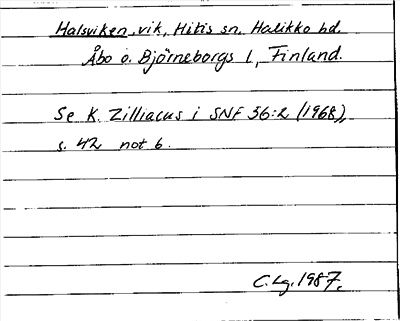 Halsviken, vik, Hitis sn, Halikko hd.
Åbo o. Björneborgs l, Finland.
Se K. Zilliacus i SNF 56:2 (1968),
s. 42 not 6.
C. Lg. 1987.